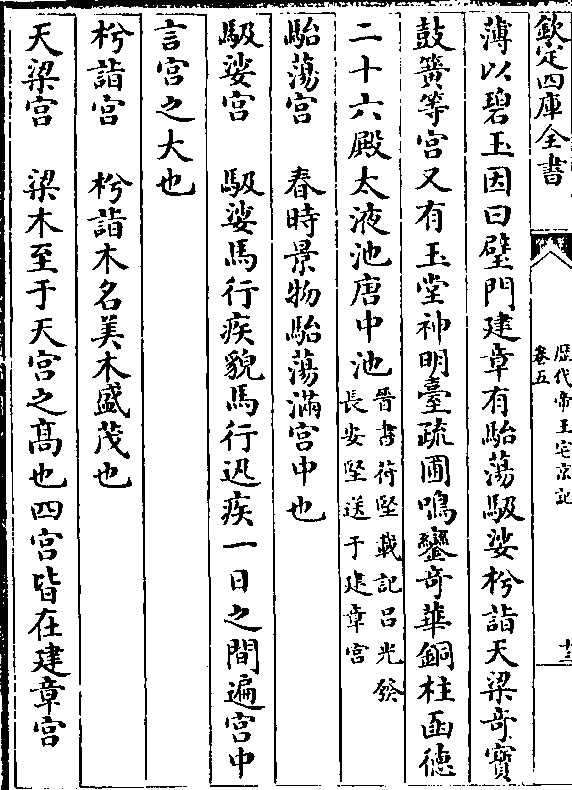 欽定四庫全書
歴代帝王宅京記
卷五
十三
薄以碧玉因曰璧門建章有駘蕩馺娑枍詣天梁竒寳
鼓簧等宫又有玉堂神明臺疏圃鳴鑾竒華銅柱函徳
二十六殿太液池唐中池晉書苻堅載記吕光發
長安堅送于建章宫
駘蕩宫 春時景物駘蕩滿宫中也
馺娑宫 馺娑馬行疾貌馬行迅疾一日之間遍宫中
言宫之大也
枍詣宫 枍詣木名美木盛茂也
天梁宫 梁木至于天宫之髙也四宫皆在建章宫